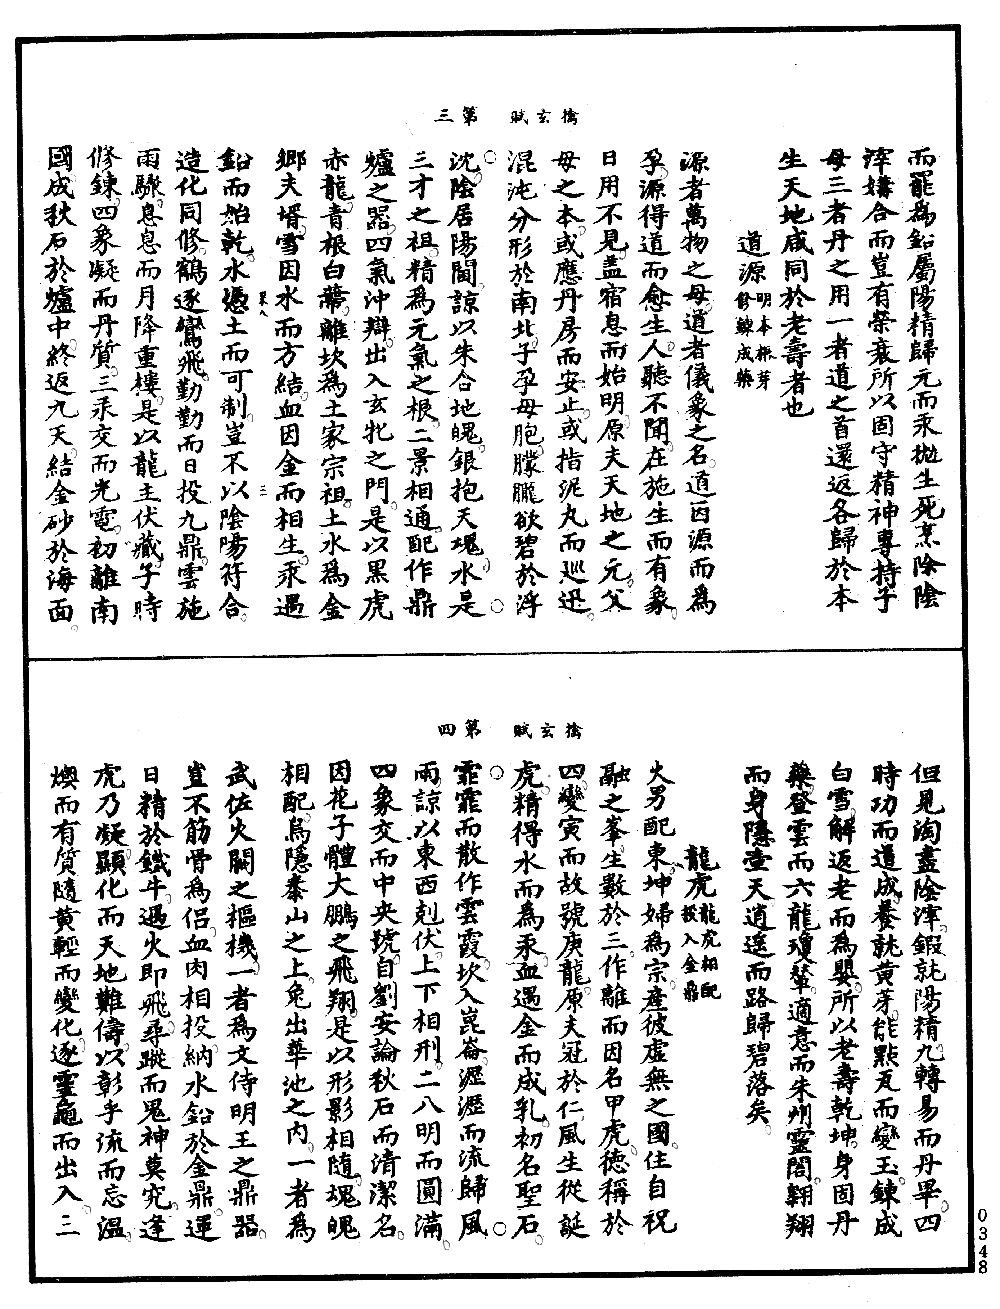 擒玄賦　第三
而罷為鉛屬陽精歸元而汞拋生死烹除陰
滓媾合而豈有榮衰所以固守精神專持子
母三者丹之用一者道之首還返各歸於本
生天地咸同於老壽者也
道源明本根芽修鍊成藥
源者萬物之母道者儀象之名道因源而為
孕源得道而愈生人聽不聞在施生而有象
日用不見盖宿息而始明原夫天地之元父
母之本或應丹房而安止或指泥丸而巡迅
混沌分形於南北子孕母胞朦朧欲碧於浮
沈陰居陽間諒以朱合地魄銀抱天魂水是
三才之祖精為元氣之根二景相通配作鼎
爐之器四氣沖辯出入玄牝之門是以黑虎
赤龍青根白蔕離坎為土家宗祖土水為金
鄉夫壻雪因水而方結血因金而相生汞遇
鉛而始乾水憑土而可制豈不以陰陽符合
造化同修鶴逐鸞飛勤勤而日投九鼎雲施
雨驟息息而月降重樓是以龍主伏藏子時
修鍊四象凝而丹質三汞交而光電初離南
國成秋石於爐中終返九天結金砂於海面
擒玄賦　第四
但見淘盡陰滓鍜就陽精九轉易而丹畢四
時功而道成養就黃芽能點瓦而變玉鍊成
白雪解返老而為嬰所以老壽乾坤身固丹
藥登雲而六龍瓊輦適意而朱州靈閣翱翔
而身隱堂天逍遥而路歸碧落矣
龍虎龍虎相配投入金鼎
火男配東坤婦為宗產彼虛無之國住自祝
融之峯生數於三作離而因名甲虎德稱於
四變寅而故號庚龍原夫冠於仁風生從誕
虎精得水而為汞血遇金而成乳初名聖石
霏霏而散作雲霞坎入崑崙瀝瀝而流歸風
雨諒以東西剋伏上下相刑二八明而圓滿
四象交而中央號自劉安論秋石而清潔名
因花子體大鵬之飛翔是以形影相隨魂魄
相配烏隱泰山之上兔出華池之內一者為
武佐火關之樞機一者為文侍明王之鼎器
豈不筋骨為侣血肉相投納水鉛於金鼎運
日精於鐵牛遇火即飛尋蹤而鬼神莫究逢
虎乃凝顯化而天地難儔以彰乎流而忌溫
燠而有質隨黃輕而變化逐靈龜而出入三
0348